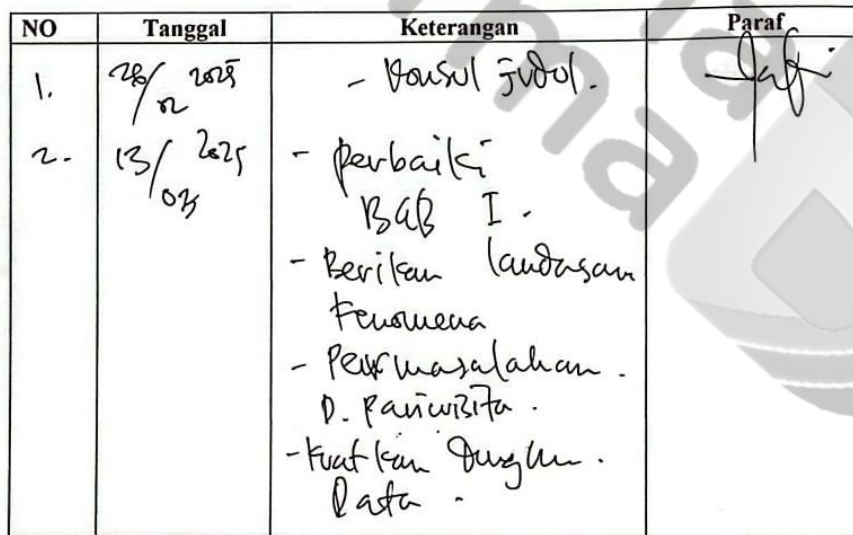 NO Tanggal Keterangan Paraf
1. 28/02 2025 - Konsul judul.
2. 13/03 2025 - perbaiki
BAB I.
- Berikan landasan
Fenomena
- Permasalahan.
D. Pariwisata.
- Kuatkan dengan
Data.